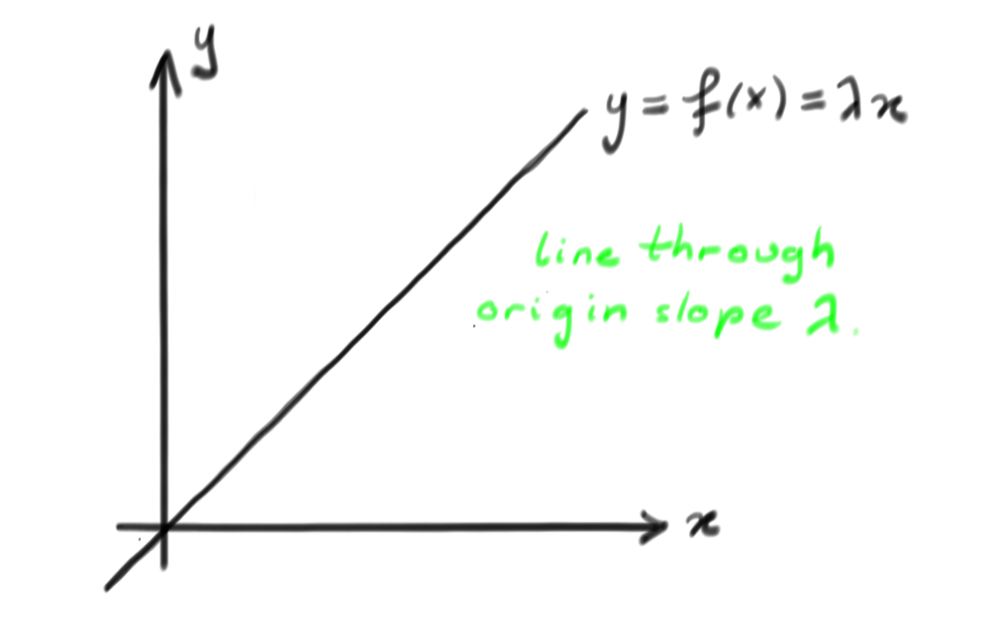 y
y = f(x) = λx
line through
origin slope λ.
x